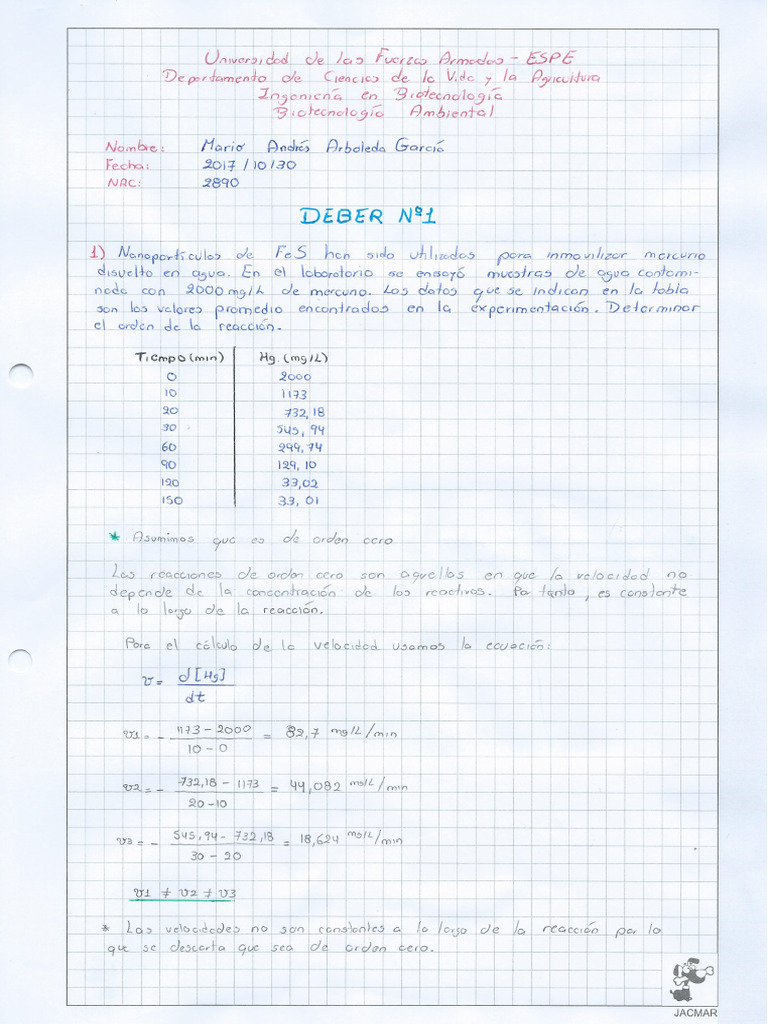 Universidad de las Fuerzas Armadas - ESPE
Departamento de Ciencias de la Vida y la Agricultura
Ingeniería en Biotecnología
Biotecnología Ambiental
Nombre: Mario Andrés Arboleda García
Fecha: 2017/10/30
NRC: 2890
DEBER Nº1
1) Nanopartículas de FeS han sido utilizadas para inmovilizar mercurio
disuelto en agua. En el laboratorio se ensayó muestras de agua contami-
nada con 2000 mg/L de mercurio. Los datos que se indican en la tabla
son los valores promedio encontrados en la experimentación. Determinar
el orden de la reacción.
Tiempo (min) Hg. (mg/L)
0 2000
10 1173
20 732,18
30 545,94
60 299,74
90 129,10
120 33,02
150 33,01
* Asumimos que es de orden cero
Las reacciones de orden cero son aquellas en que la velocidad no
depende de la concentración de los reactivos. Por tanto, es constante
a lo largo de la reacción.
Para el cálculo de la velocidad usamos la ecuación:
v = d[Hg] / dt
v1 = - (1173 - 2000) / (10 - 0) = 82,7 mg/L/min
v2 = - (732,18 - 1173) / (20 - 10) = 44,082 mg/L/min
v3 = - (545,94 - 732,18) / (30 - 20) = 18,624 mg/L/min
v1 ≠ v2 ≠ v3
* Las velocidades no son constantes a lo largo de la reacción por lo
que se descarta que sea de orden cero.
JACMAR